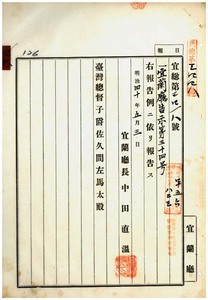 報 日
宜蘭廳
宜總第 八號
一宜蘭廳告示第三十四號
右報告例ニ依リ報告ス
明治四十年五月三日
宜蘭廳長中田直溫
臺灣總督子爵佐久間左馬太殿
126